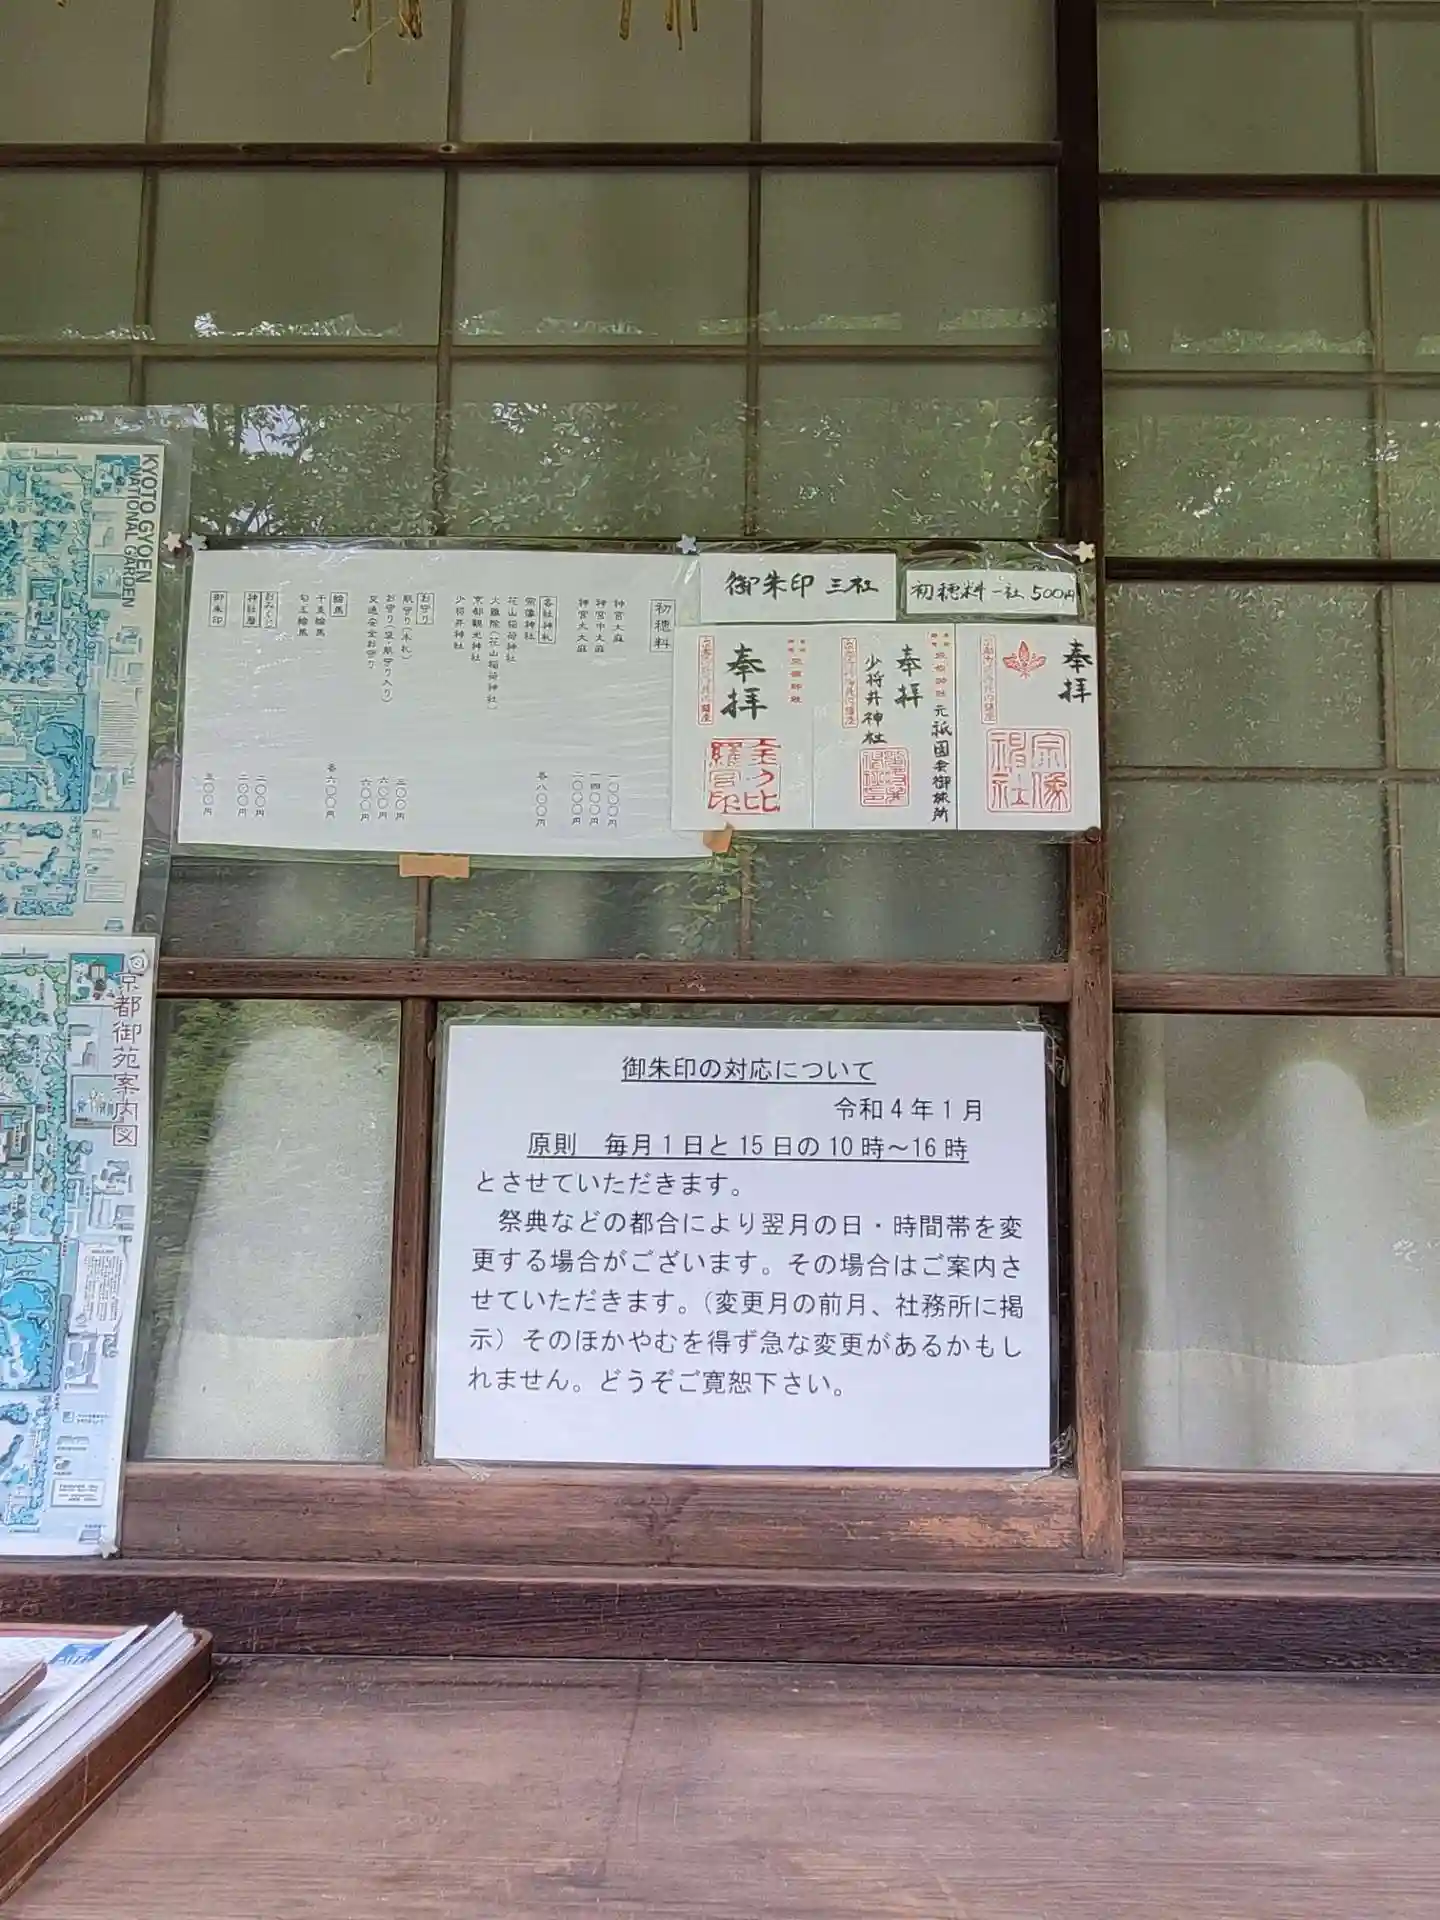 KYOTO GYOEN
NATIONAL GARDEN
京都御苑案内図
初穂料
神宮大麻 一〇〇〇円
神宮中大麻 一四〇〇円
神宮大大麻 二〇〇〇円
各社神札 各八〇〇円
宗像神社
花山稲荷神社
火難除(花山稲荷神社)
京都観光神社
少将井神社
お守り
肌守り(木札) 三〇〇円
お守り(袋・肌守り入り) 六〇〇円
交通安全お守り 六〇〇円
絵馬 各六〇〇円
干支絵馬
勾玉絵馬
おみくじ 二〇〇円
神社暦 二〇〇円
御朱印 五〇〇円
御朱印 三社
初穂料一社500円
奉拝
宗像神社
奉拝
元祇園社御旅所
少将井神社
奉拝
御朱印の対応について
令和4年1月
原則 毎月1日と15日の10時~16時
とさせていただきます。
祭典などの都合により翌月の日・時間帯を変
更する場合がございます。その場合はご案内さ
せていただきます。(変更月の前月、社務所に掲
示)そのほかやむを得ず急な変更があるかもし
れません。どうぞご寛恕下さい。